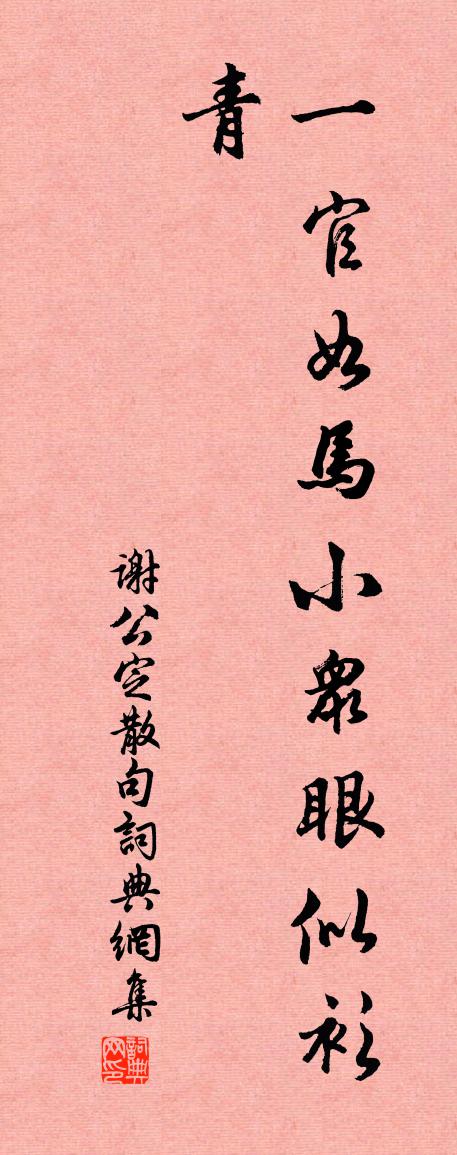 一官如馬小衆眼似衫
青
謝公定散句詞典網集
詞典网印